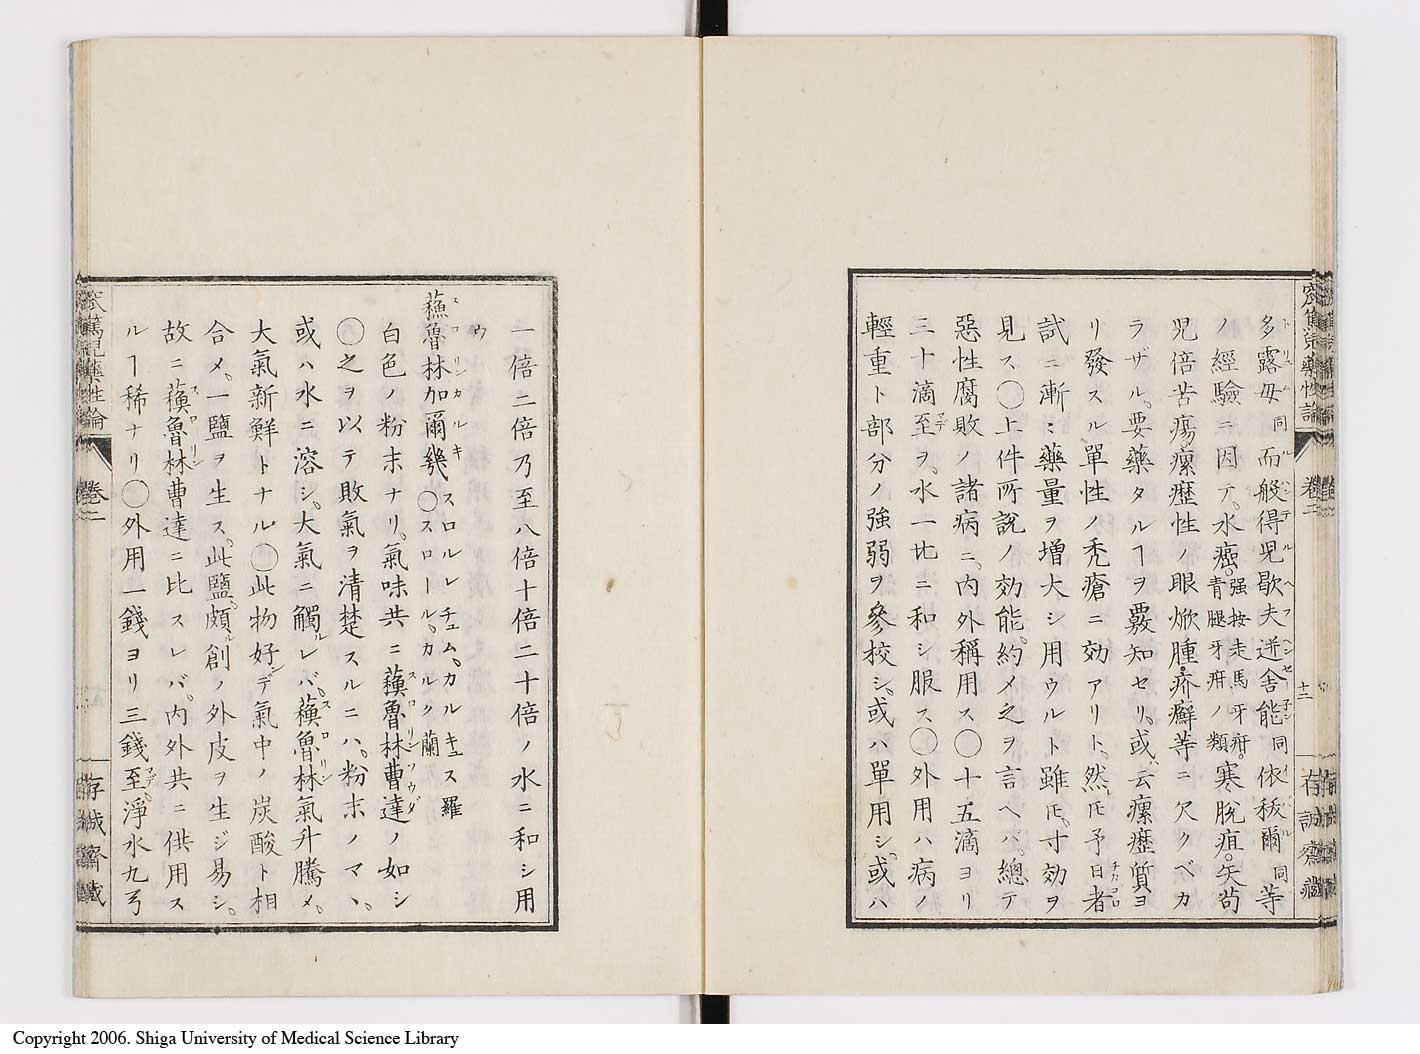 多露毋同而般得児歇夫逬舎能同依秡爾同等
ノ經驗ニ因テ。水癌。強按走馬牙疳。青腿牙疳ノ類寒脱疽。失苟
児倍苦瘍。瘰癧性ノ眼焮腫。疥癬等ニ欠クベカ
ラザル。要藥タルヿヲ覈知セリ。或云瘰癧質ヨ
リ發スル單性ノ禿瘡ニ効アリト。然𪜈予日者チカコロ
試ニ漸〻藥量ヲ増大シ用ウルト雖𪜈。寸効ヲ
見ス○上件所説ノ効能。約メ之ヲ言ヘバ。總テ
惡性腐敗ノ諸病ニ。内外稱用ス○十五滴ヨリ
三十滴至マデヲ。水一匕ニ和シ服ス○外用ハ病ノ
輕重ト部分ノ強弱ヲ參校シ。或ハ單用シ。或ハ
窊篤児藥性論 卷二 十二 存誠齋藏
一倍二倍乃至八倍十倍二十倍ノ水ニ和シ用
ウ
蘓魯林加爾幾スロリンカルキ○スロルレチュム。カルキュス羅 スロール。カルク蘭
白色ノ粉末ナリ。氣味共ニ蘓魯林曹達スロリンソウダノ如シ
○之ヲ以テ敗氣ヲ清楚スルニハ。粉末ノマヽ。
或ハ水ニ溶シ。大氣ニ觸ルレバ。蘓魯林スロリン氣升騰メ。
大氣新鮮トナル○此物好ンデ氣中ノ炭酸ト相
合メ。一鹽ヲ生ス。此鹽。頗ル創ノ外皮ヲ生ジ易シ。
故ニ蘓魯林スロリン曹達ニ比スレバ。内外共ニ供用ス
ルヿ稀ナリ○外用一錢ヨリ三錢至マデ。淨水九弓
窊篤児藥性論 卷二 存誠齋藏
Copyright 2006. Shiga University of Medical Science Library